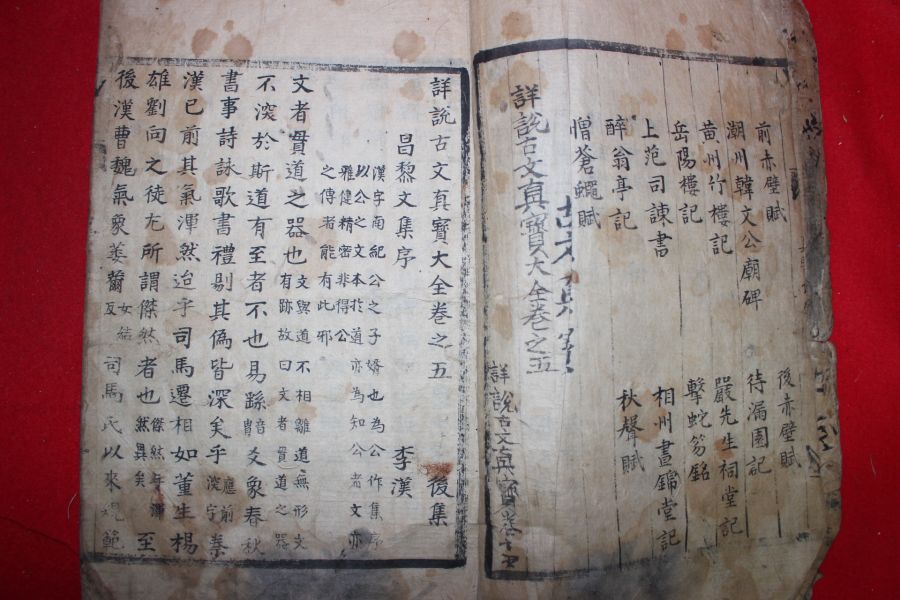 前赤壁賦 後赤壁賦
潮州韓文公廟碑 待漏園記
黄州竹樓記 嚴先生祠堂記
岳陽樓記 擊蛇笏銘
上范司諌書 相州晝錦堂記
醉翁亭記 秋聲賦
憎蒼蠅賦
詳說古文真寶大全卷之五
詳說古文真寶
詳說古文真寶大全卷之五 後集
昌黎文集序 李漢
漢字南紀公之子婿也為公作集序
以公之文本於道亦為知公者文亦
雅健精密非得公
之傳者能有此邪
文者貫道之器也 文與道不相離道無形文 有跡故曰文者貫道之器
不深於斯道有至者不也易繇 音胄 爻象春秋
書事詩詠歌書禮剔其偽皆深矣乎 應前 深字 秦
漢已前其氣渾然迨乎司馬遷相如董生楊
雄劉向之徒尤所謂傑然者也 傑然與渾 然異矣 至
後漢曹魏氣象萎薾 女結 反 司馬氏以來規範